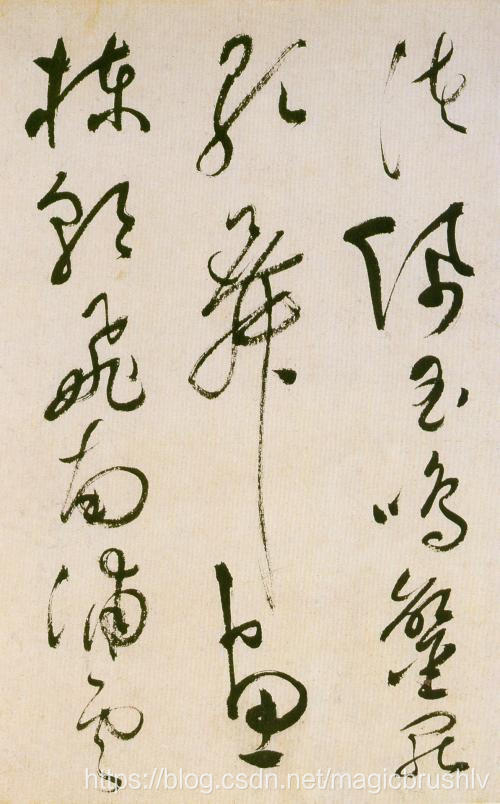 渚佩玉鳴鑾罷
歌舞畫
棟朝飛南浦雲
https://blog.csdn.net/magicbrushlv